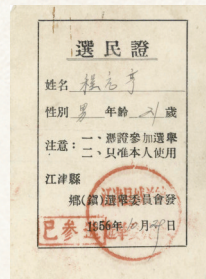 選民證
姓名 程元亨
性別 男 年齡 21 歲
注意：一、憑證參加選舉
二、只准本人使用
江津縣
鄉(鎮)選舉委員會發
1956年10月29日
已参選